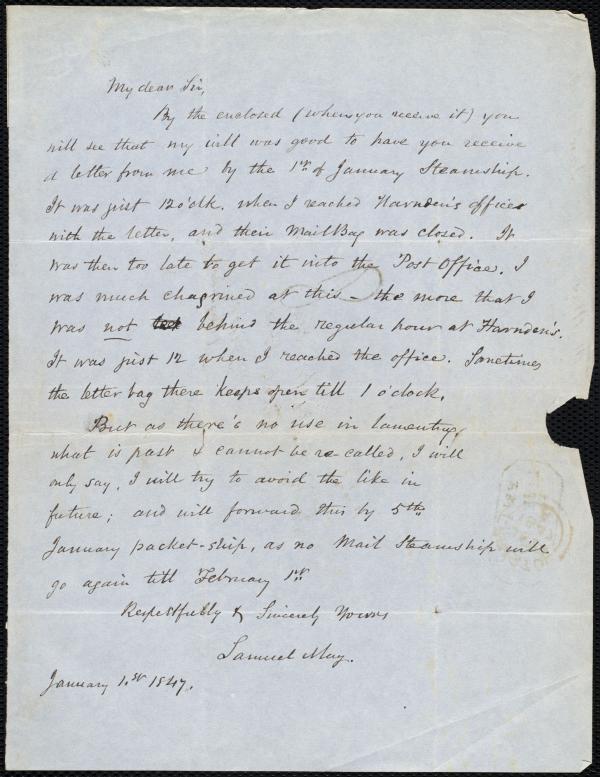 My dear Sir,
By the enclosed (when you receive it) you
will see that my will was good to have you receive
a letter from me by the 1st of January Steamship.
It was just 12 o'clk. when I reached Harnden's office
with the letter, and their Mail Bag was closed. It
was then too late to get it into the Post Office. I
was much chagrined at this – the more that I
was not behind the regular hour at Harnden's.
It was just 12 when I reached the office. Sometimes
the letter bag there keeps open till 1 o'clock.
But as there's no use in lamenting
what is past & cannot be re-called, I will
only say, I will try to avoid the like in
future; and will forward this by 5th
January packet-ship, as no Mail Steamship will
go again till February 1st
Respectfully & Sincerely Yours
Samuel May.
January 1.st 1847.